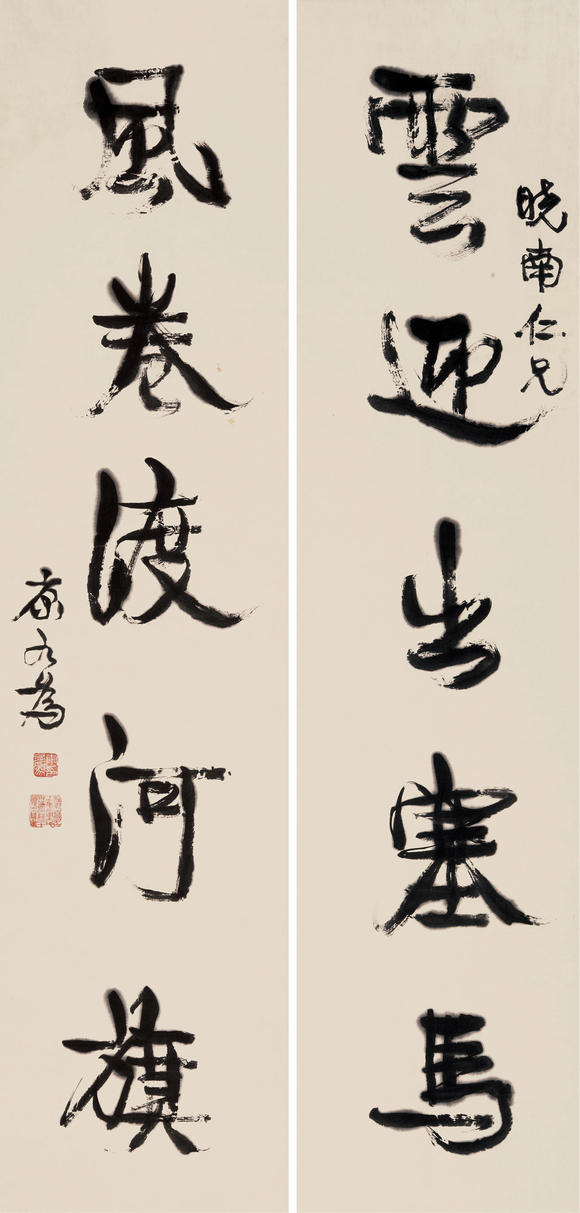 晓南仁兄
雲迎出塞馬
風卷渡河旗
康有為